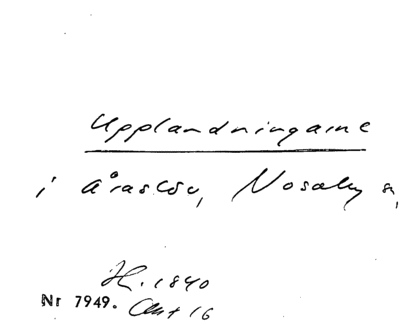 Upplandningarne
i Åraslöv, Nosaby s,
H. 1840
Nr 7949.